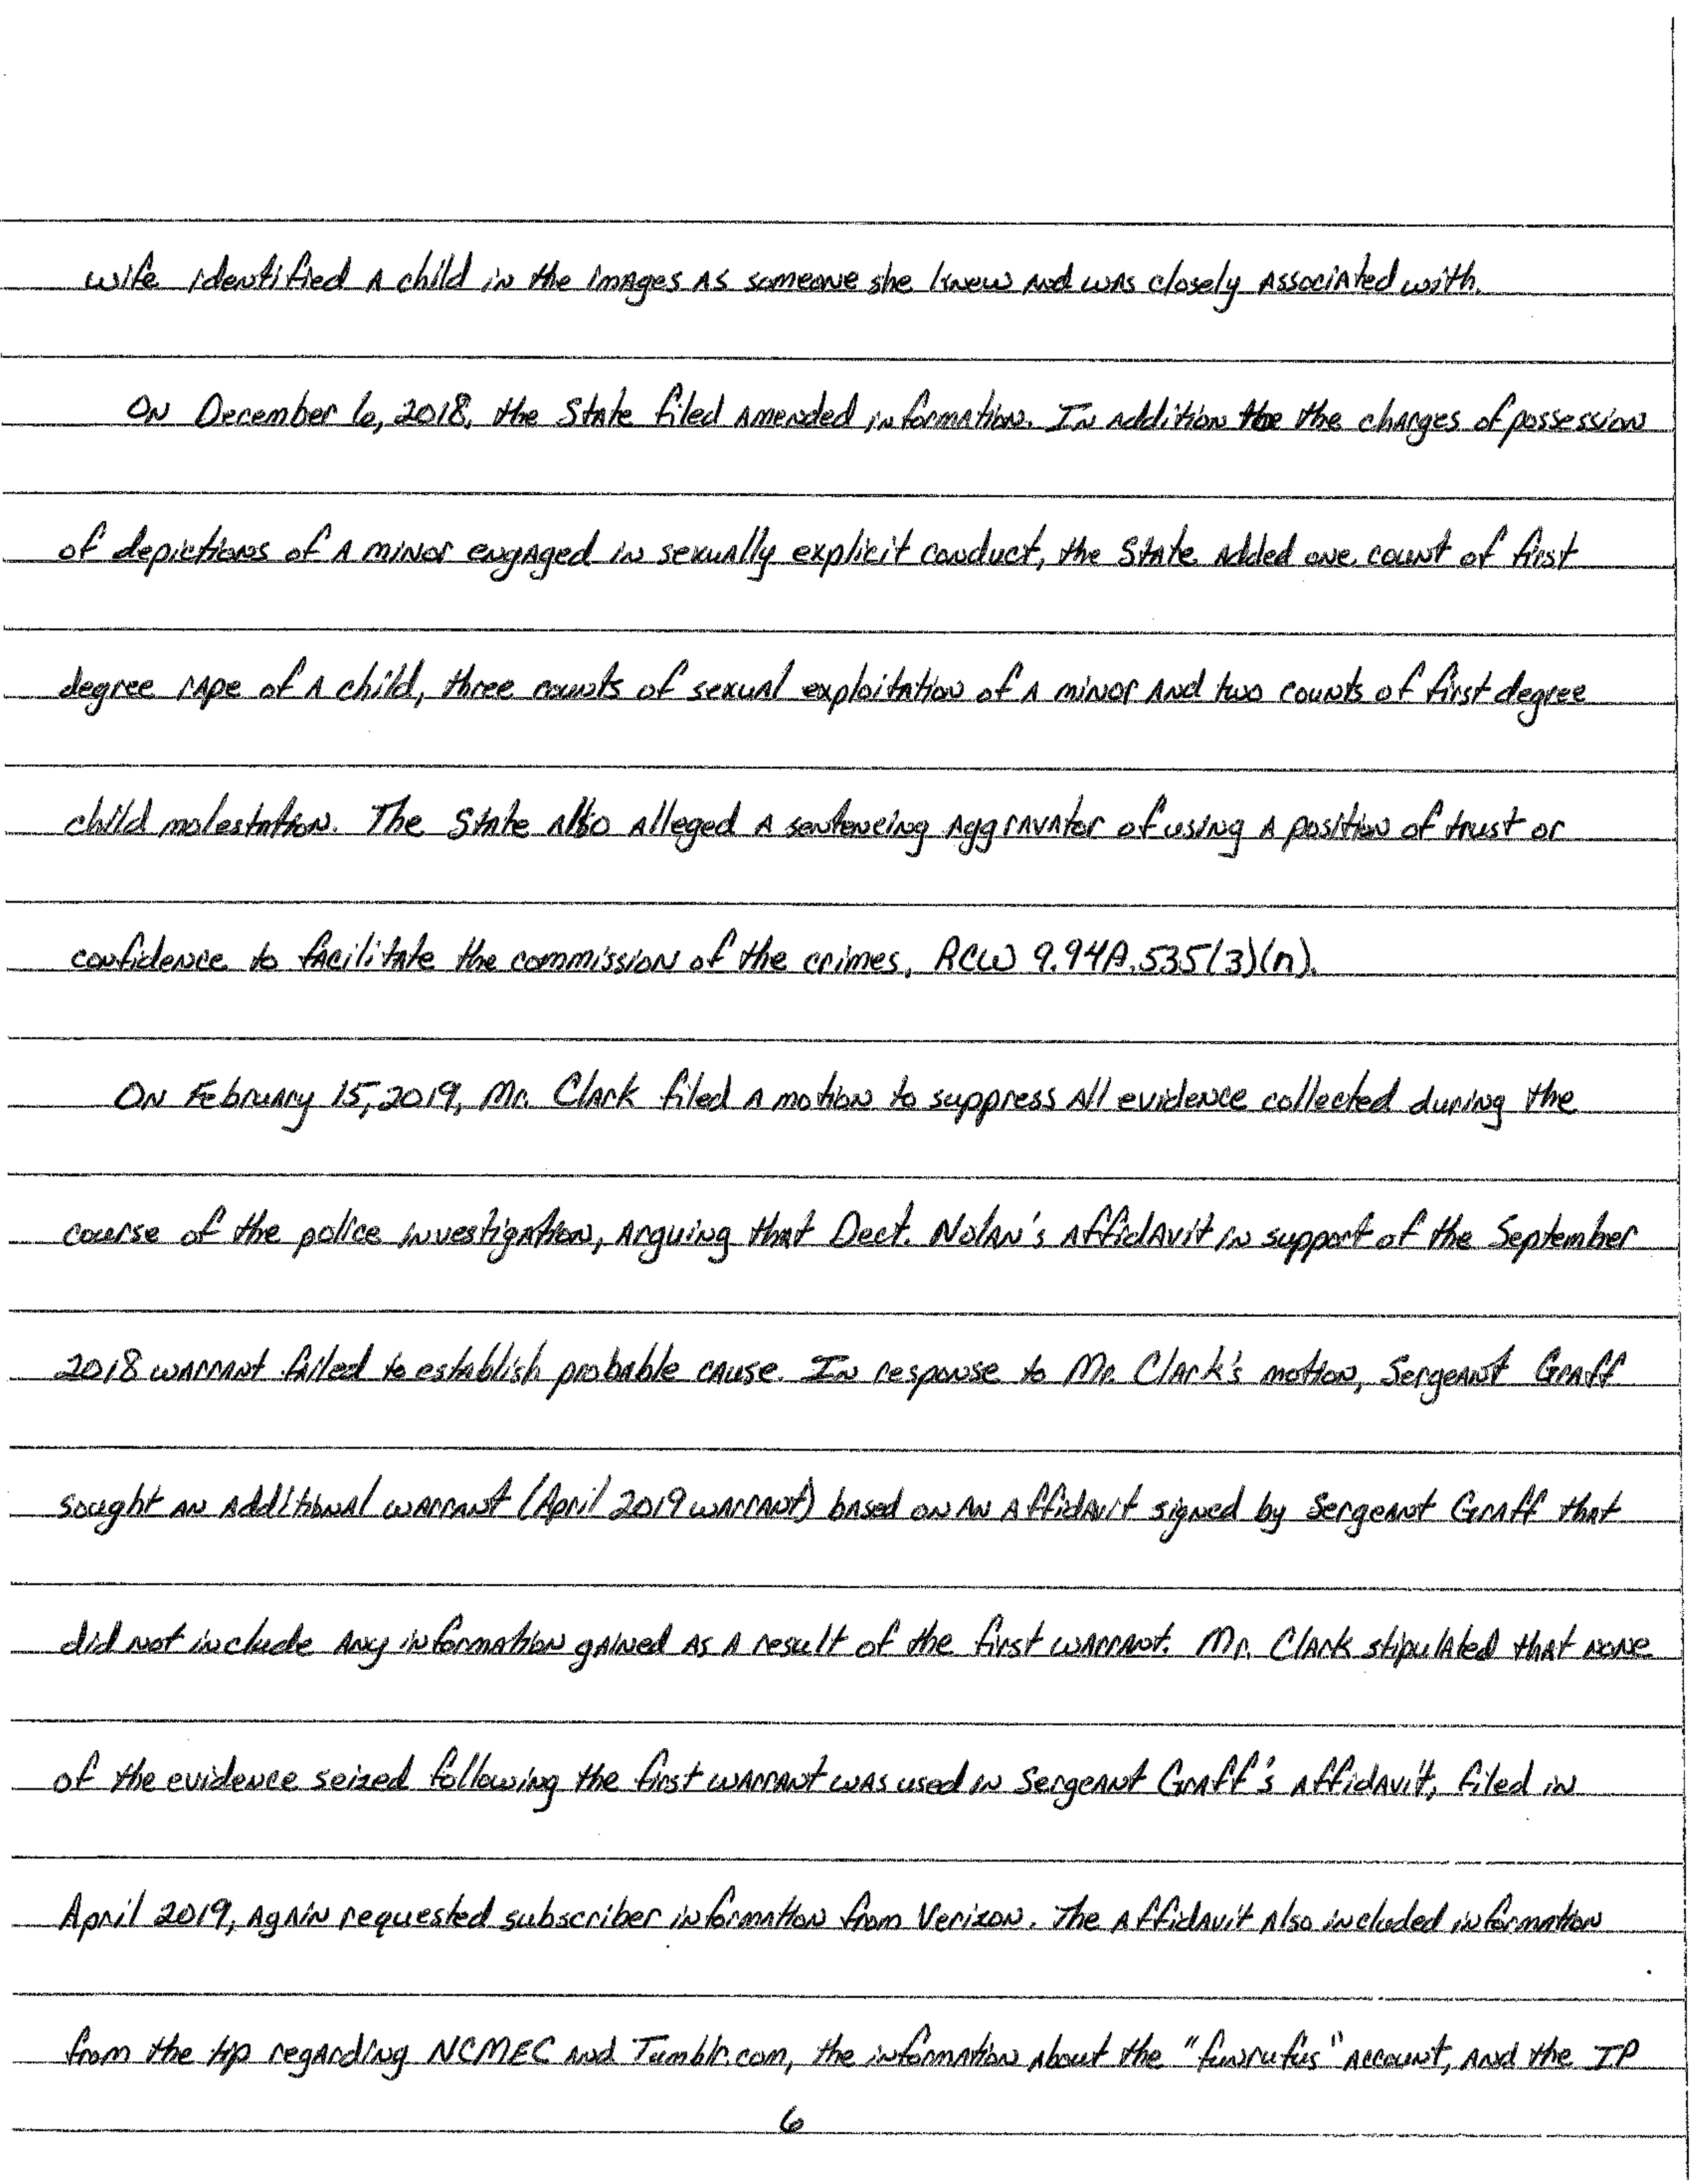 wife identified a child in the images as someone she knew and was closely associated with.
On December 6, 2018, the State filed amended information. In addition the the charges of possession
of depictions of a minor engaged in sexually explicit conduct, the State added one count of first
degree rape of a child, three counts of sexual exploitation of a minor and two counts of first degree
child molestation. The State also alleged a sentencing aggravator of using a position of trust or
confidence to facilitate the commission of the crimes, RCW 9.94A.535(3)(n).
On February 15, 2019, Mr. Clark filed a motion to suppress all evidence collected during the
course of the police investigation, arguing that Dect. Nolan's affidavit in support of the September
2018 warrant failed to establish probable cause. In response to Mr. Clark's motion, Sergeant Graff
sought an additional warrant (April 2019 warrant) based on an affidavit signed by Sergeant Graff that
did not include any information gained as a result of the first warrant. Mr. Clark stipulated that none
of the evidence seized following the first warrant was used in Sergeant Graff's affidavit, filed in
April 2019, again requested subscriber information from Verizon. The affidavit also included information
from the tip regarding NCMEC and Tumblr.com, the information about the "funrufus" account, and the IP
6